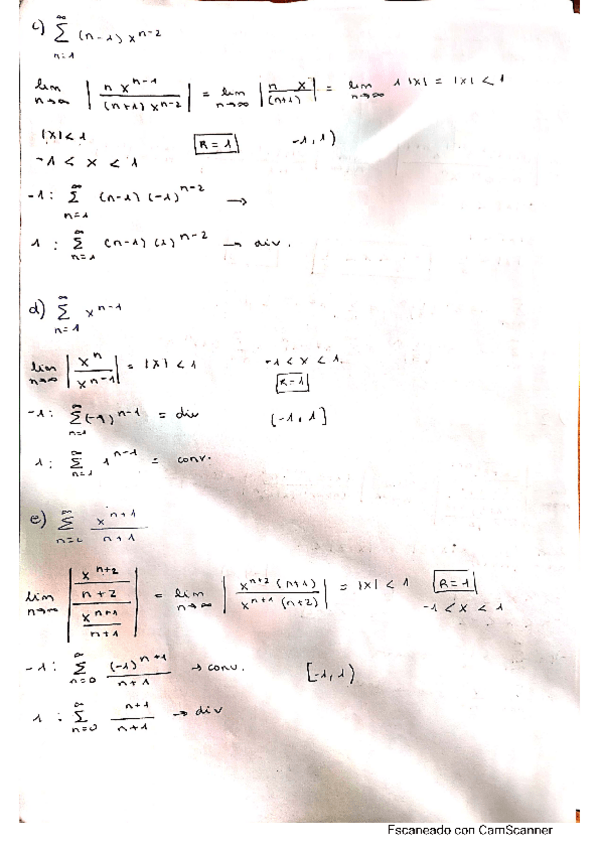 c) ∞∑n=1 (n-1) x^{n-2}
lim n→∞ | n x^{n-1} / (n+1) x^{n-2} | = lim n→∞ | n x / (n+1) | = lim n→∞ 1 |x| = |x| < 1
|x| < 1 R = 1 -1, 1)
-1 < x < 1
-1: ∞∑n=1 (n-1) (-1)^{n-2} →
1 : ∞∑n=1 (n-1) (1)^{n-2} → div.
d) ∞∑n=1 x^{n-1}
lim n→∞ | x^n / x^{n-1} | = |x| < 1 -1 < x < 1.
R=1
-1: ∞∑n=1 (-1)^{n-1} = div (-1, 1]
1: ∞∑n=1 1^{n-1} = conv.
e) ∞∑ x^{n+1} / n+1
lim n→∞ | (x^{n+2} / n+2) / (x^{n+1} / n+1) | = lim n→∞ | x^{n+2} (n+1) / x^{n+1} (n+2) | = |x| < 1 R=1
-1 < x < 1
-1: ∞∑n=0 (-1)^{n+1} / n+1 → conv. [-1, 1)
1 : ∞∑n=0 n+1 / n+1 → div
Escaneado con CamScanner